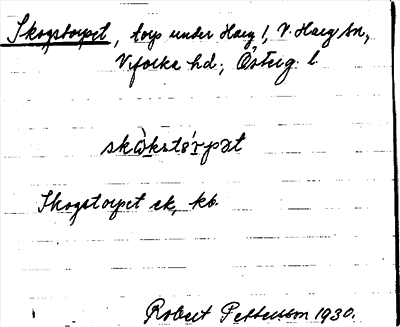 Skogstorpet, torp under Harg 1, V. Harg sn,
Vifolka hd; Östug. l.
skὼkstó́rpət
Skogstorpet ek, kb.
Robert Pettersson 1930.